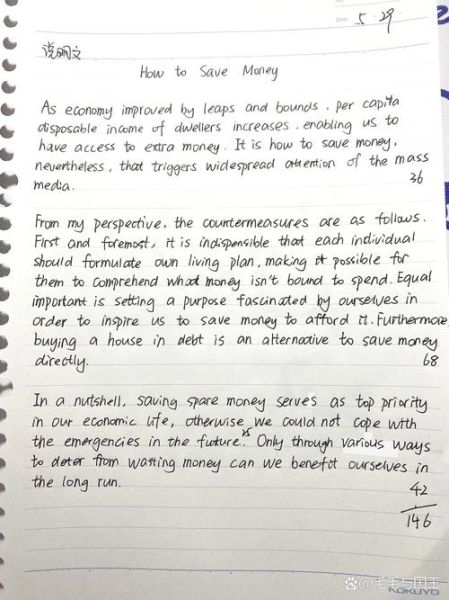 Date 5 · 29
说明文
How to Save Money
As economy improved by leaps and bounds, per capita
disposable income of dwellers increases, enabling us to
have access to extra money. It is how to save money,
nevertheless, that triggers widespread attention of the mass
media.
36
From my perspective, the countermeasures are as follows.
First and foremost, it is indispensible that each individual
should formulate own living plan, making it possible for
them to comprehend what money isn't bound to spend. Equal
important is setting a purpose fascinated by ourselves in
order to inspire us to save money to afford it. Furthermore,
buying a house in debt is an alternative to save money
directly.
68
In a nutshell, saving spare money serves as top priority
in our economic life, otherwise we could not cope with
the emergencies in the future. Only through various ways
to deter from wasting money can we benefit ourselves in
the long run.
42
146
KOKUYO